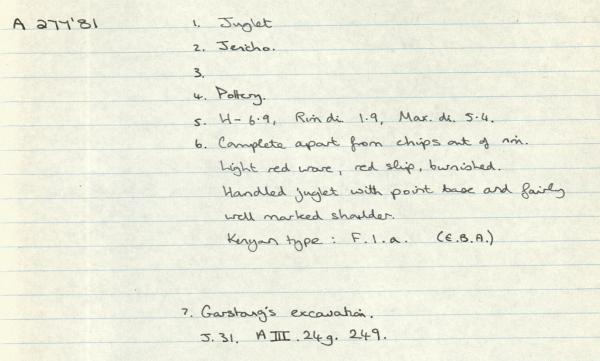 A 277'81
1. Juglet
2. Jericho.
3.
4. Pottery.
5. H- 6.9, Rim di 1.9, Max. di. 5.4.
6. Complete apart from chips out of rim.
Light red ware, red slip, burnished.
Handled juglet with point base and fairly
well marked shoulder.
Kenyan type : F.1.a. (E.B.A.)
7. Garstang's excavation.
J. 31. A III. 24g. 249.